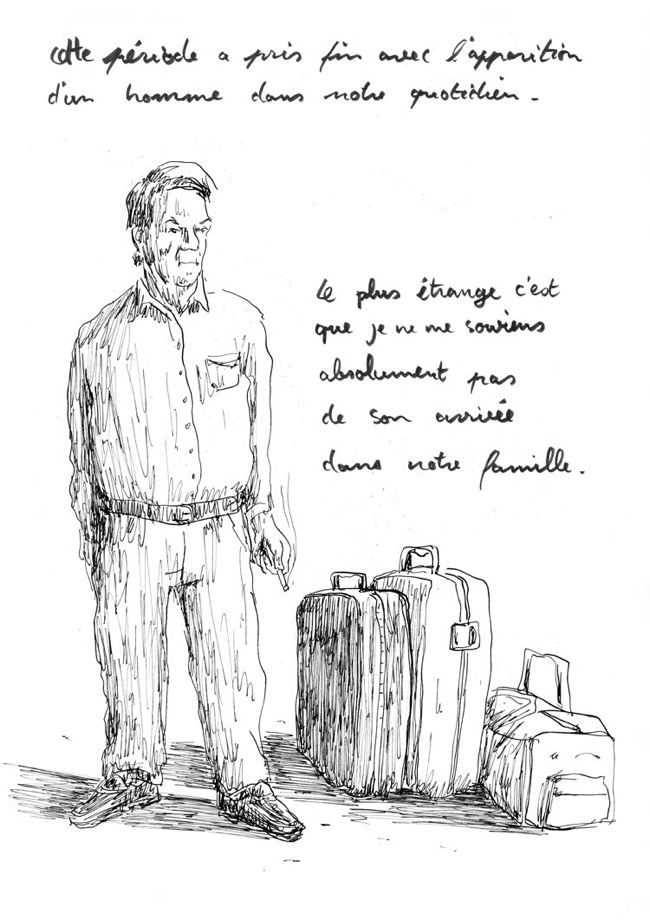 cette période a pris fin avec l'apparition
d'un homme dans notre quotidien.
Le plus étrange c'est
que je ne me souviens
absolument pas
de son arrivée
dans notre famille.